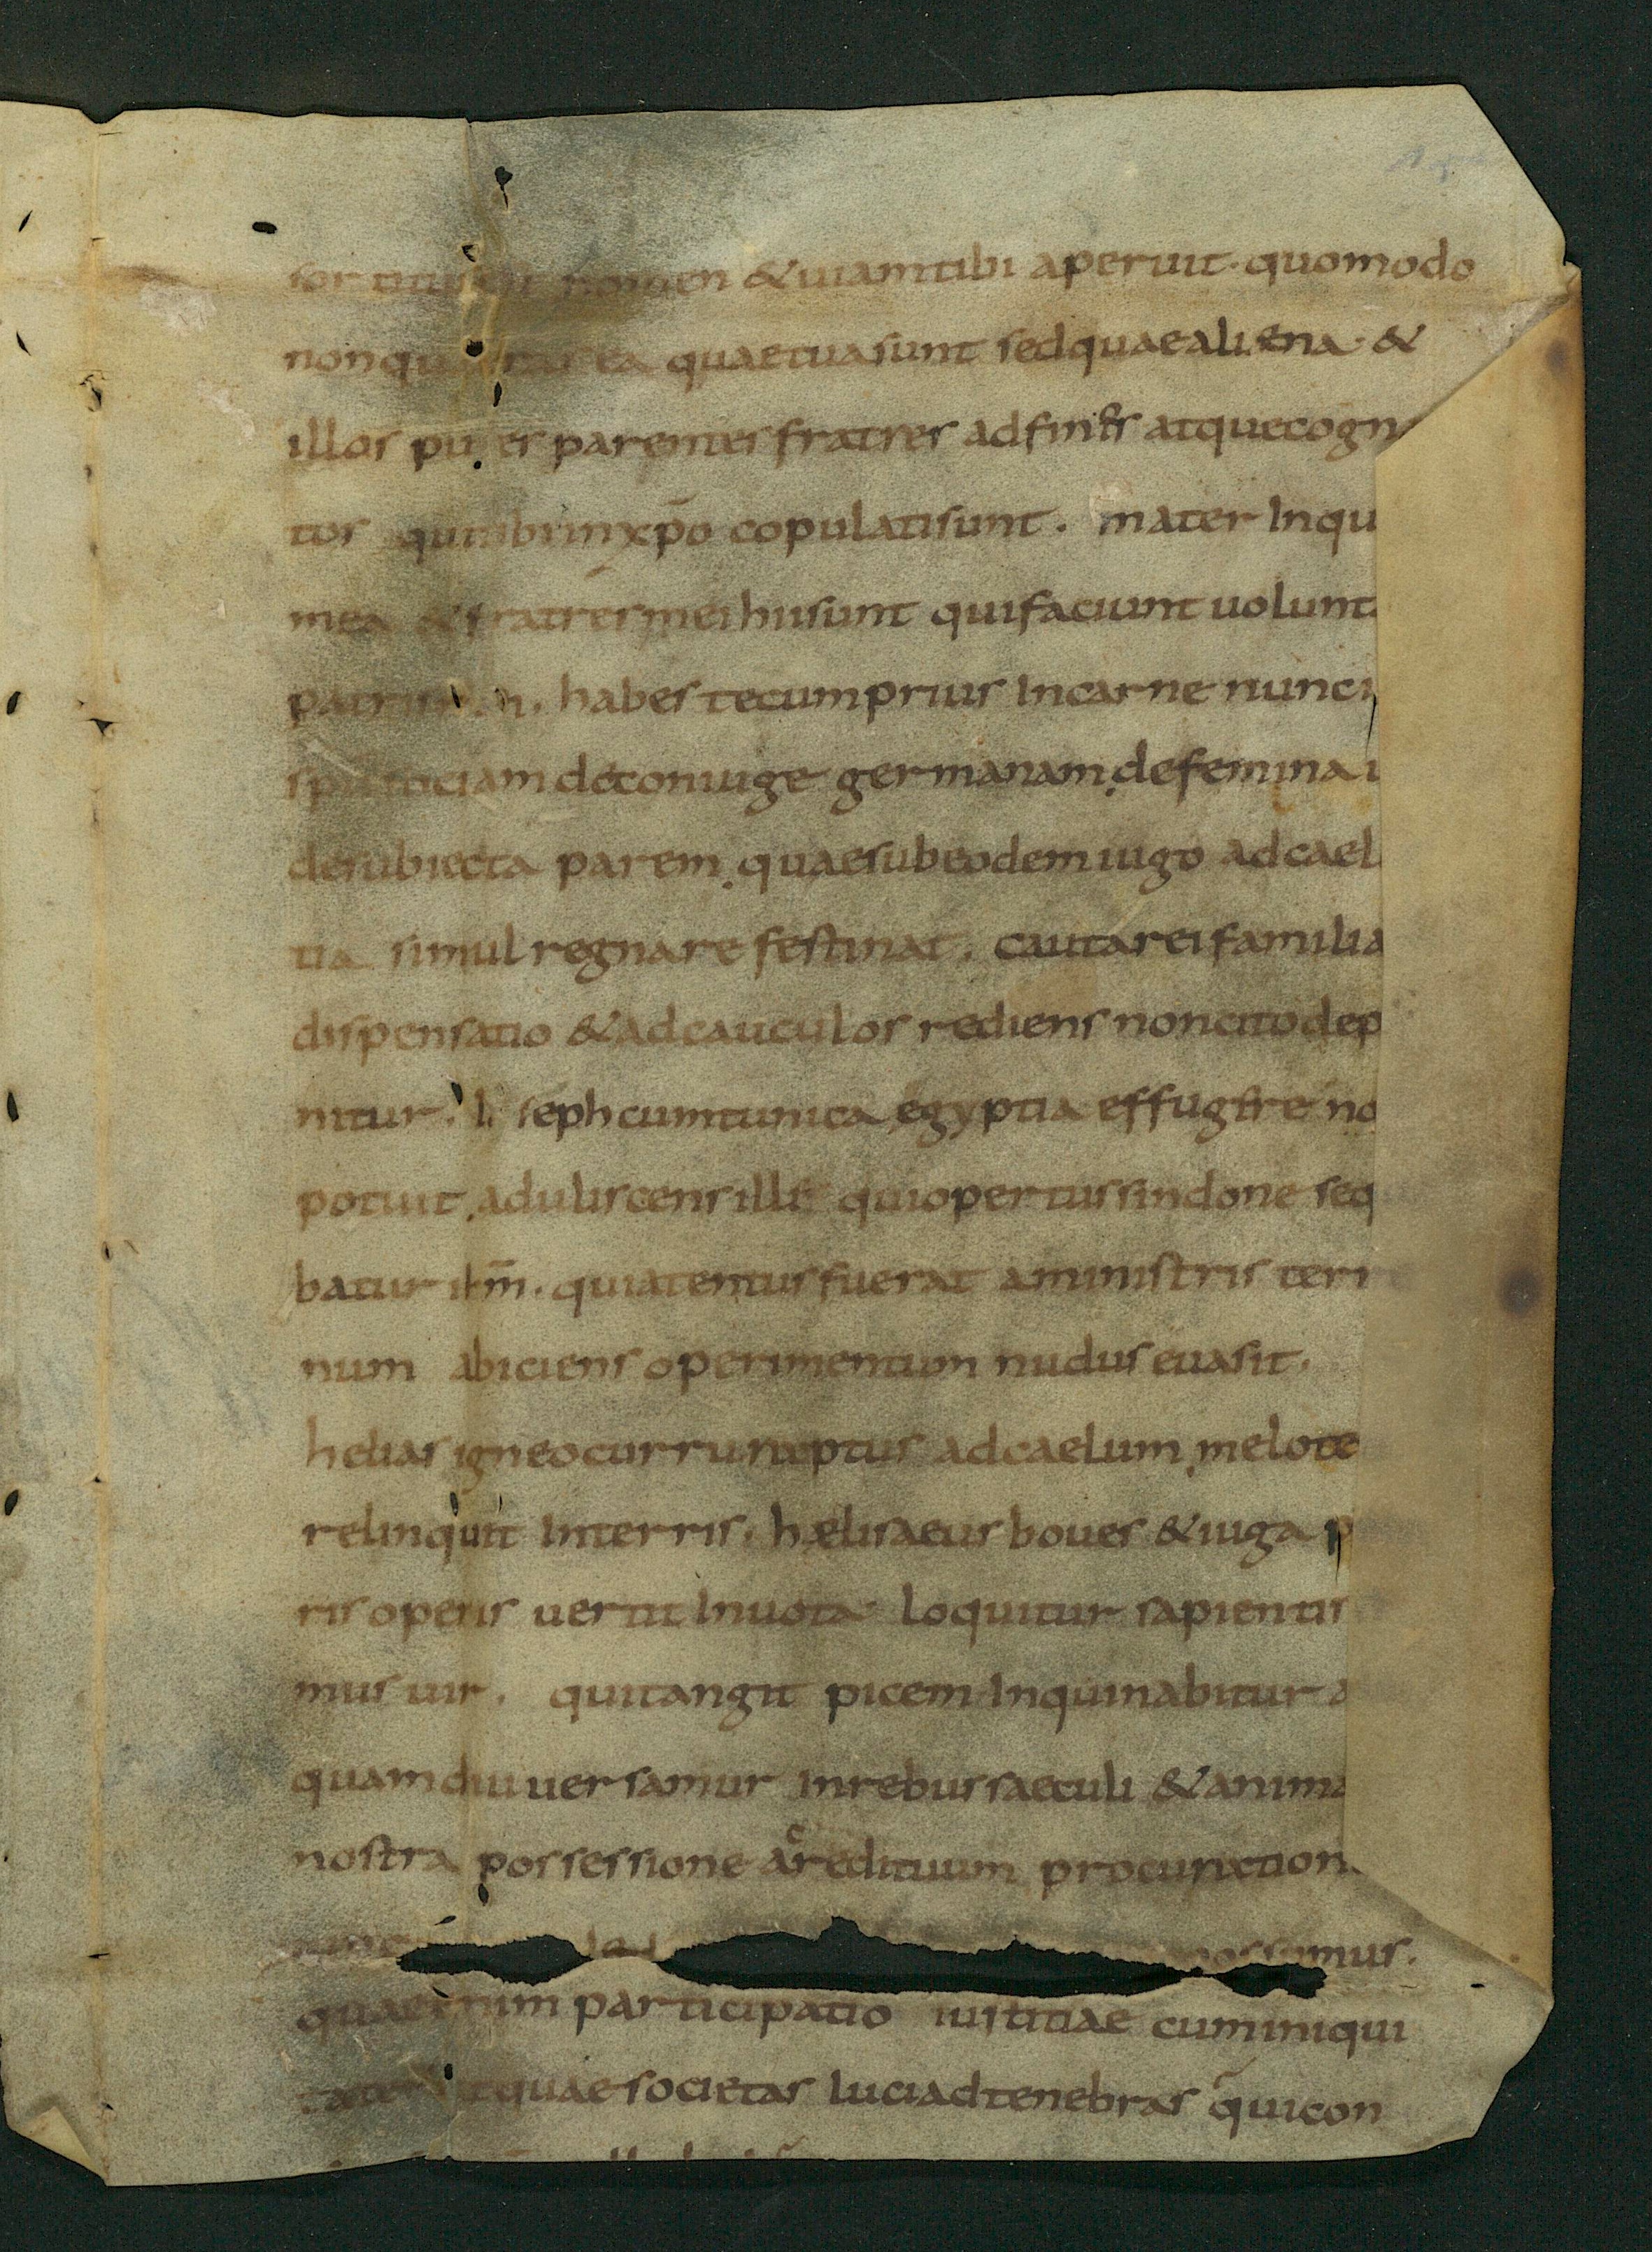 sortitus est nomen & uiam tibi aperuit · quomodo
non quaeras ea quae tua sunt sed quae aliena · &
illos putes parentes fratres adfines atque cogn
tos qui tibi in xp̄o copulati sunt . mater inqu
mea & fratres mei hii sunt qui faciunt uolunt
patris habes tecum prius in carne nunc i
spu sociam de coniuge germanam . de femina u
de subiecta parem . quae sub eodem iugo ad cael
tia simul regnare festinat . cauta rei familia
dispensatio & ad cauculos rediens non cito dep
nitur . seph cum tunica egyptia effugere no
potuit . aduliscens ille qui opertus sindone seq
batur ihm̄ . quia tentus fuerat a ministris terre
num abiciens operimentum nudus euasit .
helias igneo curru raptus ad caelum . melote
relinquit in terris . hælisaeus boues & iuga p
ris operis uertit in uota · loquitur sapientis
mus uir . qui tangit picem inquinabitur a
quamdiu uersamur in rebus saeculi & anima
nostra possessione ac redituum procuration
possumus .
quae enim participatio iustitiae cum iniqui
tate quae societas luci ad tenebras qui con